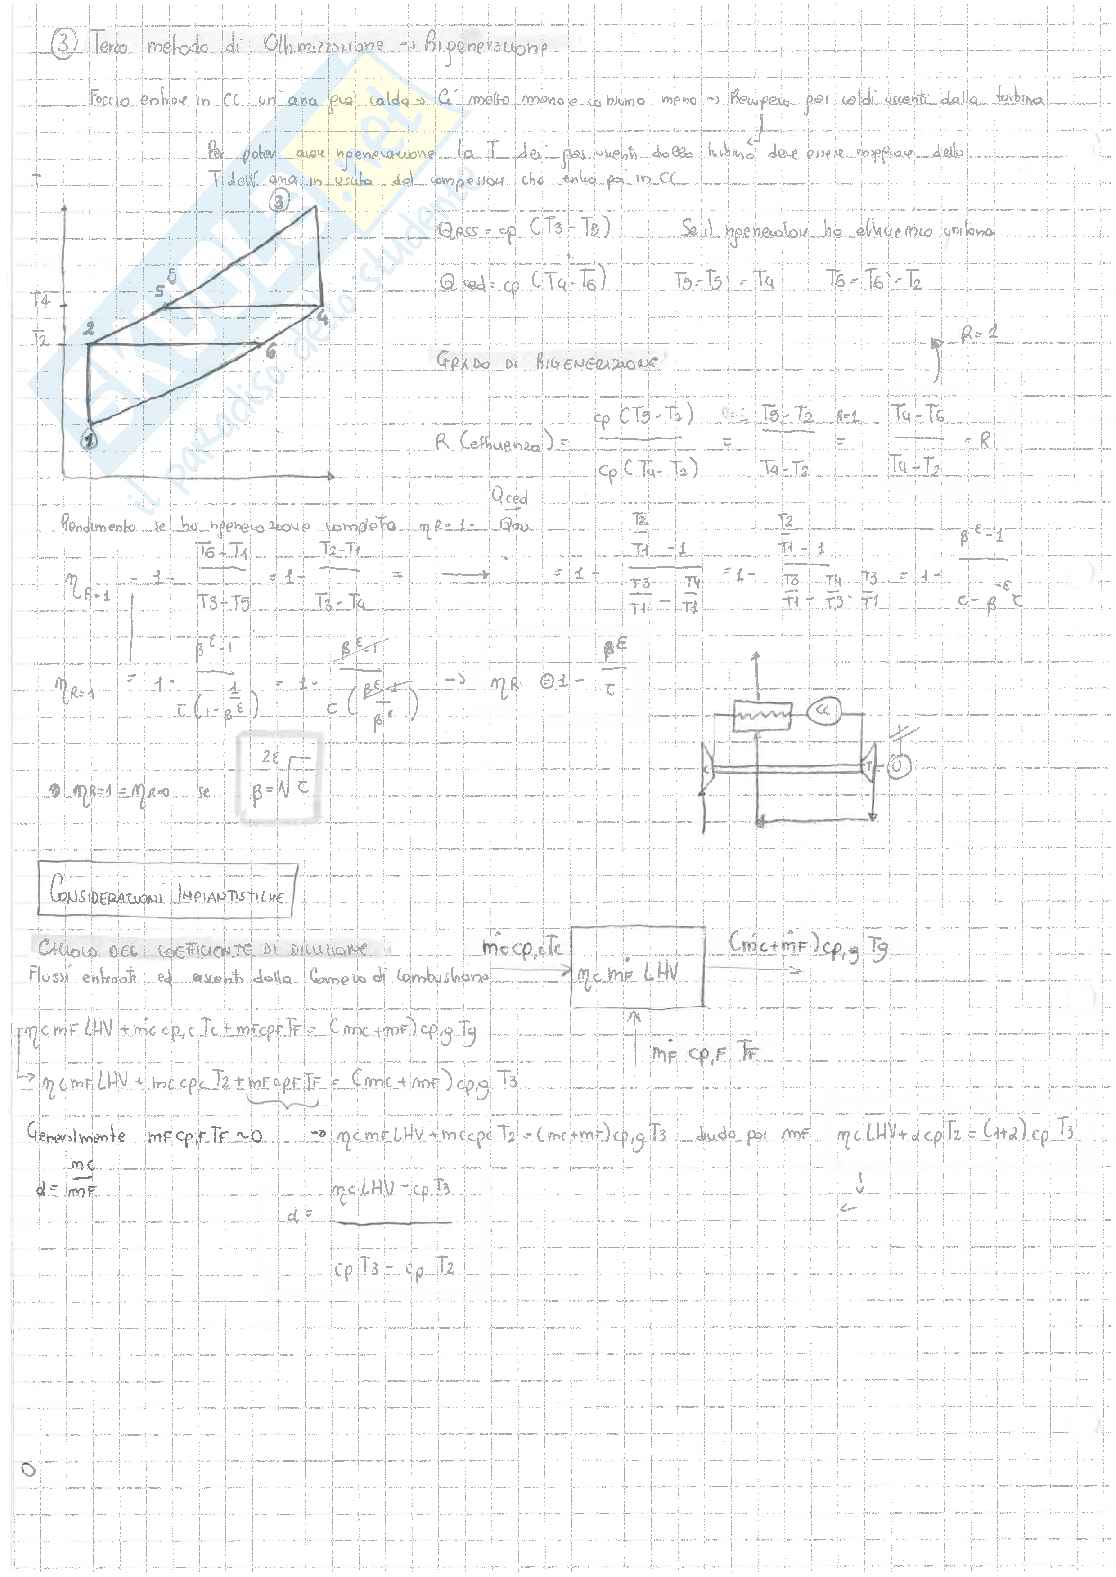 ③ Terzo metodo di Ottimizzazione → Rigenerazione
Faccio entrare in CC un'aria già calda → Ci metto meno e consumo meno → Recupero gas caldi uscenti dalla turbina
Per poter avere rigenerazione la T dei gas uscenti dalla turbina deve essere maggiore della
T dell'aria in uscita del compressore che entra poi in CC
T
③
5
T4
2
T2
4
6
①
Qass = cp (T3 - T5) Se il rigeneratore ha efficienza unitaria
Qced = cp (T4 - T6) T5 = T5' = T4 T6 = T6' = T2
R = 1
GRADO DI RIGENERAZIONE
R (efficienza) = cp (T5 - T2) / cp (T4 - T2) = T5 - T2 / T4 - T2 R=1 = T4 - T6 / T4 - T2 = R
Rendimento se ho rigenerazione completa ηR=1 = 1 - Qced / Qass
ηR=1 = 1 - T6 - T1 / T3 - T5 = 1 - T2 - T1 / T3 - T4 = → = 1 - T2/T1 - 1 / T3/T1 - T4/T1 = 1 - T2/T1 - 1 / T3/T1 - T4/T3 · T3/T1 = 1 - β^ε - 1 / τ - β^-ε τ
ηR=1 = 1 - β^ε - 1 / τ (1 - 1/β^ε) = 1 - β^ε - 1 / τ (β^ε - 1 / β^ε) → ηR = 1 - β^ε / τ
CC
C
T
U
ηR=1 = ηR=0 se β = 2ε√τ
CONSIDERAZIONI IMPIANTISTICHE
CALCOLO DEL COEFFICIENTE DI DILUIZIONE
Flussi entranti ed uscenti dalla Camera di Combustione
ṁc cp,c Tc
ηc ṁF LHV
(ṁc + ṁF) cp,g Tg
ṁF cp,F TF
ηc mF LHV + ṁc cp,c Tc + mF cpF TF = (mc + mF) cp,g Tg
→ ηc mF LHV + mc cpc T2 + mF cpF TF = (mc + mF) cp,g T3
Generalmente mF cp,F TF ~ 0 → ηc mF LHV + mc cpc T2 = (mc + mF) cp,g T3 divido per mF ηc LHV + α cp T2 = (1+α) cp T3
α = mc / mF
α = ηc LHV - cp T3 / cp T3 - cp T2
SKUOLA.net
il paradiso dello studente